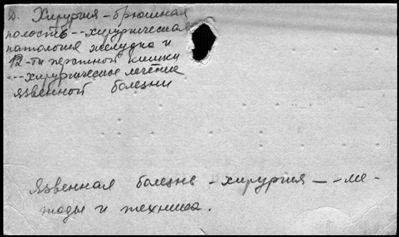 D. Хирургия - брюшная
полость -- хирургическая
патология желудка и
12-ти перстной кишки
--- хирургическое лечение
язвенной болезни
Язвенная болезнь - хирургия -- ме-
тоды и техника.